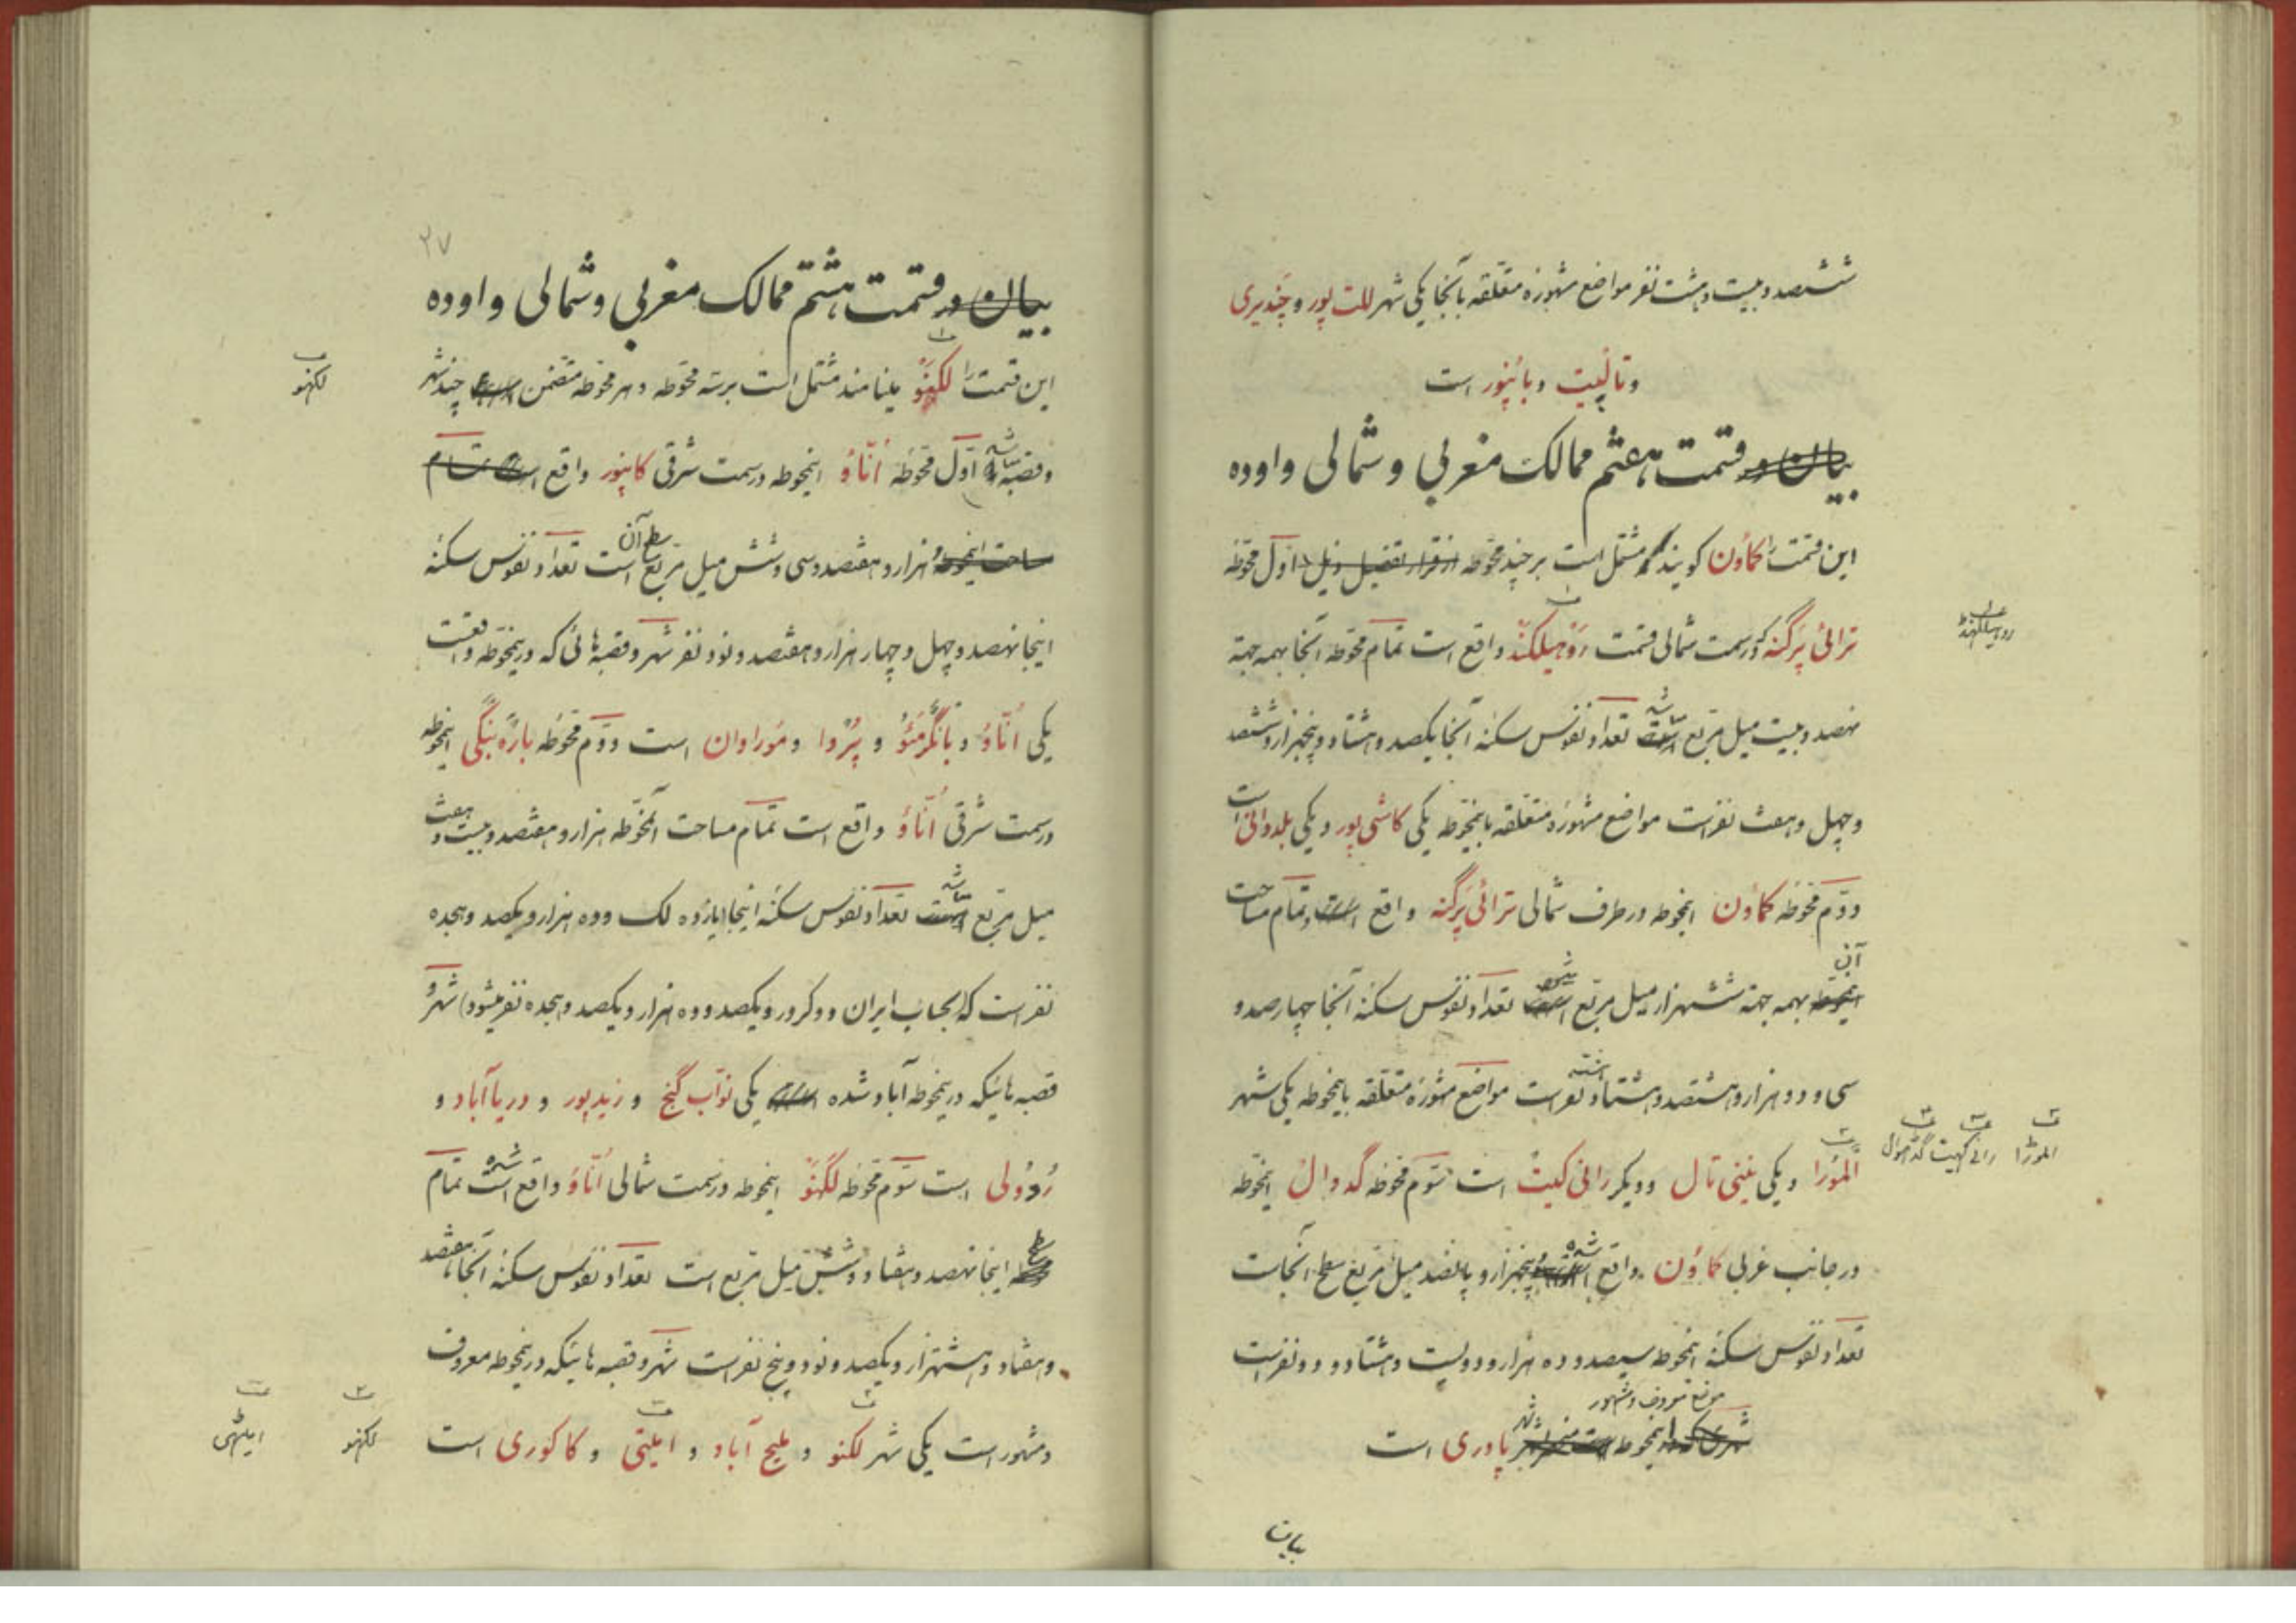 ششصد و بیست و هشت نفر مواضع مشهوره متعلقه بآنجا یکی شهر للت پور و چندیری
و تالبیت و بانپور است
بیان در قسمت هفتم ممالک مغربی و شمالی و اوده
این قسمت را کماؤن گویند مشتمل است بر چند محوطه از قرار تفصیل ذیل اول محوطه
ترائی پرگنه که در سمت شمالی قسمت روهیلکند واقع است تمام محوطه آنجا بهمه جهة
نهصد و بیست میل مربع تعداد نفوس سکنه آنجا یکصد و هشتاد و پنجهزار و ششصد
و چهل و هفت نفر است مواضع مشهوره متعلقه باینمحوطه یکی کاشی پور و یکی بلدوانی است
دوم محوطه کماؤن اینمحوطه در طرف شمالی ترائی پرگنه واقع است و تمام مساحت
آن
اینمحوطه بهمه جهة ششهزار میل مربع تعداد نفوس سکنه آنجا چهارصد و
سی و دو هزار و هشتصد و هشتاد نفر است مواضع مشهوره متعلقه باینمحوطه یکی شهر
المورا و یکی نینی تال و دیگر رانی کیت است سوم محوطه گدوال اینمحوطه
در جانب غربی کماؤن واقع شده پنجهزار و پانصد میل مربع سطح آنجاست
تعداد نفوس سکنه اینمحوطه سیصد و ده هزار و دویست و هشتاد و دو نفر است
موضع معروف و مشهور
اینمحوطه شهر پاوری است
بیان
روهیلکهنڈ
الموڑا رانے کهیت گڈهوال
۲۷
بیان در قسمت هشتم ممالک مغربی و شمالی و اوده
این قسمت را لکهنو مینامند مشتمل است بر سه محوطه و هر محوطه متضمن چند شهر
و قصبه اول محوطه انّاؤ اینمحوطه در سمت شرقی کانپور واقع است تمام
مساحت اینمحوطه هزار و هفتصد و سی و شش میل مربع سطح آن است تعداد نفوس سکنه
اینجا نهصد و چهل و چهار هزار و هفتصد و نود نفر شهر و قصبه هائی که در ینمحوطه واقعست
یکی انّاؤ و بانگرمئو و پروا و موراوان است دوم محوطه باره بنکی اینمحوطه
در سمت شرقی انّاؤ واقع است تمام مساحت آنمحوطه هزار و هفتصد و بیست و هفت
میل مربع تعداد نفوس سکنه اینجا یازده لک و ده هزار و یکصد و هجده
نفر است که بحساب ایران دو کرور و یکصد و ده هزار و یکصد و هجده نفر میشود شهر و
قصبه هائیکه در ینمحوطه آباد شده یکی نواب گنج و زیدپور و دریاآباد و
رودولی است سوم محوطه لکهنو اینمحوطه در سمت شمالی انّاؤ واقع شده تمام
سطح اینجا نهصد و هفتاد و شش میل مربع است تعداد نفوس سکنه آنجا هفتصد
و هفتاد و هشتهزار و یکصد و نود و پنج نفر است شهر و قصبه هائیکه در ینمحوطه معروف
و مشهور است یکی شهر لکنو و ملیح آباد و ایلیتی و کاکوری است
لکهنو
لکهنو
امیٹهی